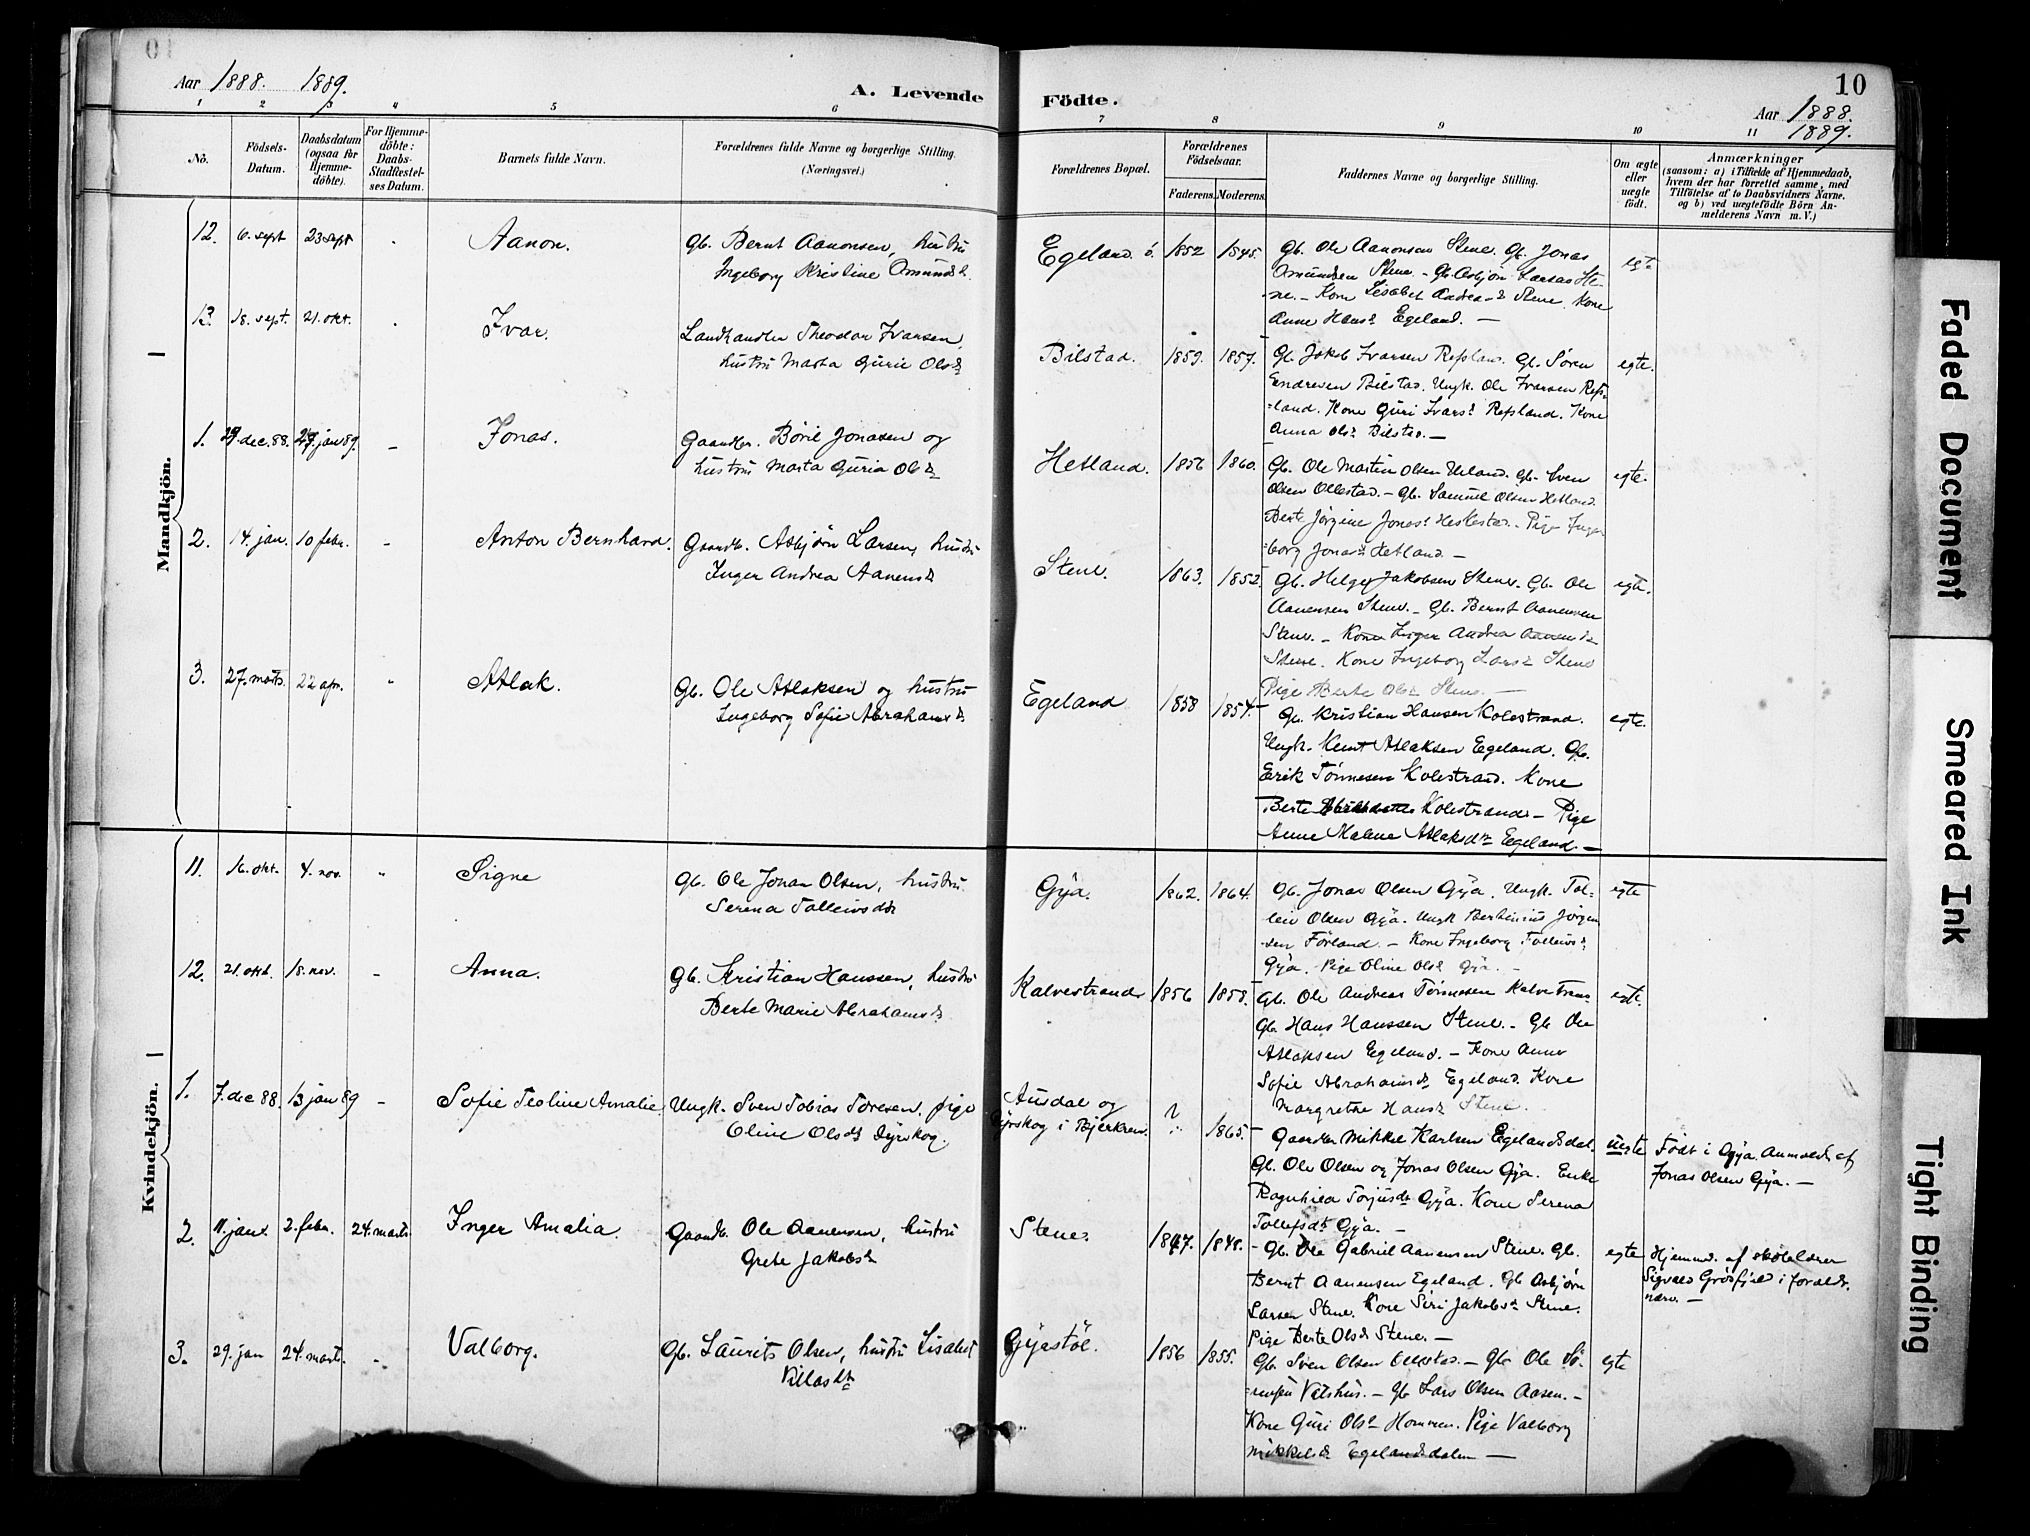 10
Aar 1888. 1889.
A. Levende Födte.
Aar 1888.
1889.
1 2 3 4 5 6 7 8 9 10 11
No.
Födsels-Datum.
Daabsdatum (ogsaa for Hjemme-döbte).
For Hjemme-döbte: Daabs-Stadfæstel-ses Datum.
Barnets fulde Navn.
Forældrenes fulde Navne og borgerlige Stilling.
(Næringsvei.)
Forældrenes Bopæl.
Forældrenes Födselsaar.
Faderens. Moderens.
Faddernes Navne og borgerlige Stilling.
Om ægte eller uægte födt.
Anmærkninger
(saasom: a) i Tilfælde af Hjemmedaab,
hvem der har forrettet samme, med
Tilföielse af to Daabsvidners Navne.
og b) ved uægtefödte Börn An-
melderens Navn m. V.)
Mandkjön.
12. 6. sept 23 sept Aanon. Gb. Bernt Aanonsen, hustru
Ingeborg Kristine Omunds d.
Egeland ö. 1852 1845.
Gb. Ole Aanonsen Stene. Gb. Jonas
Omundsen Stene - Gb. Asbjörn Larsen Ste-
ne. - Kone Lisabet Andrea Stene. Kone
Anne Hansd. Egeland. -
egte
13. 18. sept. 21. okt. Ivar. Landhandler Theodor Ivarsen,
hustru Marta Gurie Olsd.
Bilstad. 1859. 1857.
Gb. Jakob Ivarsen Refsland. Gb. Sören
Endresen Bilstad. Ungk. Ole Ivarsen Refs-
land. Kone Guri Ivarsd. Refsland. Kone
Anna Olsd. Bilstad. -
egte.
1. 29. dec. 88. 27. jan 89. - Jonas. Gaardbr. Böril Jonasen og
hustru Marta Guria Olsd.
Hetland. 1856 1860.
Gb. Ole Martin Olsen Ueland. Gb. Sven
Olsen Ollestad. - Gb. Samuel Olsen Hetland
Berte Jörgine Jonasd. Heskestad. - Pige Inge-
borg Jonasd. Hetland. -
egte.
2. 14. jan. 10 febr. - Anton Bernhard. Gaardb. Asbjörn Larsen, hustru
Inger Andrea Aanensd.
Stene. 1863. 1852.
Gb. Helge Jakobsen Stene. Gb. Ole
Aanensen Stene. - Gb. Bernt Aanensen
Stene. - Kone Inger Andrea Aanensd.
Stene. Kone Ingeborg Larsd. Stene
Pige Berte Olsd. Stene. -
egte.
3. 27. marts. 22 apr. " Atlak. Gb. Ole Atlaksen og hustru
Ingeborg Sofie Abrahamsd.
Egeland 1858 1854.
Gb. Kristian Hansen Kolestrand.
Ungk. Knut Atlaksen Egeland. Gb.
Erik Tönnesen Kolestrand. Kone
Berte Kolestrand - Pige
Anne Malene Atlaksdr Egeland. -
egte.
Kvindekjön.
11. 16. okt. 4. nov. " Signe Gb. Ole Jonas Olsen, hustru
Serena Tolleivsdr
Gya. 1862. 1864.
Gb. Jonas Olsen Gya. Ungk. Tol-
leiv Olsen Gya. Ungk Bertinius Jörgen-
sen Förland. - Kone Ingeborg Tolleivsd.
Gya. Pige Oline Olsd. Gya. -
egte
12. 21. okt. 18. nov. - Anna. Gb. Kristian Hanssen, hustru
Berte Marie Abrahamsd.
Kalvestrand 1856 1858.
Gb. Ole Andreas Tönnesen Kalvestrand
Gb. Hans Hanssen Stene. - Gb Ole
Atlaksen Egeland. - Kone Anne
Sofie Abrahamsd. Egeland. Kone
Margrethe Hansd. Stene.
egte.
1. 7. dec 88. 13 jan 89 - Sofie Teoline Amalie. Ungk. Sven Tobias Toresen, pige
Oline Olsdt Dyrskog.
Ausdal og
Dyrskog i Bjerkrem. ? 1865.
Gaardbr Mikkel Karlsen Egelandsdal.
Gb. Ole Olsen og Jonas Olsen Gya. Enke
Ragnhild Torjusdr Gya. Kone Serena
Tollefsdt Gya. -
uegte Födt i Gya. Anmeldt af
Jonas Olsen Gya. -
2. 11. jan. 2. febr. 24. marts Inger Amalia. Gaardb. Ole Aanensen, hustru
Grete Jakobsd.
Stene. 1847. 1848.
Gb. Ole Gabriel Aanensen Stene. Gb.
Bernt Aanensen Egeland. Gb Asbjörn
Larsen Stene. Kone Siri Jakobsd. Stene.
Pige Berte Olsd. Stene. -
egte Hjemmed. af skolelærer
Sigvald Grösfjeld i foreldr.
nærv. -
3. 29. jan 24. marts. - Valborg. Gb. Laurits Olsen, hustru Lisabet
Villasdtr
Gyastöl. 1856 1855.
Gb. Sven Olsen Ollestad. - Gb. Ole Sö-
rensen Vatshus. - Gb Lars Olsen Aasen. -
Kone Guri Olsd. Hommen. Pige Valborg
Mikkelsd. Egelandsdalen -
egte
Faded Document
Smeared Ink
Tight Binding